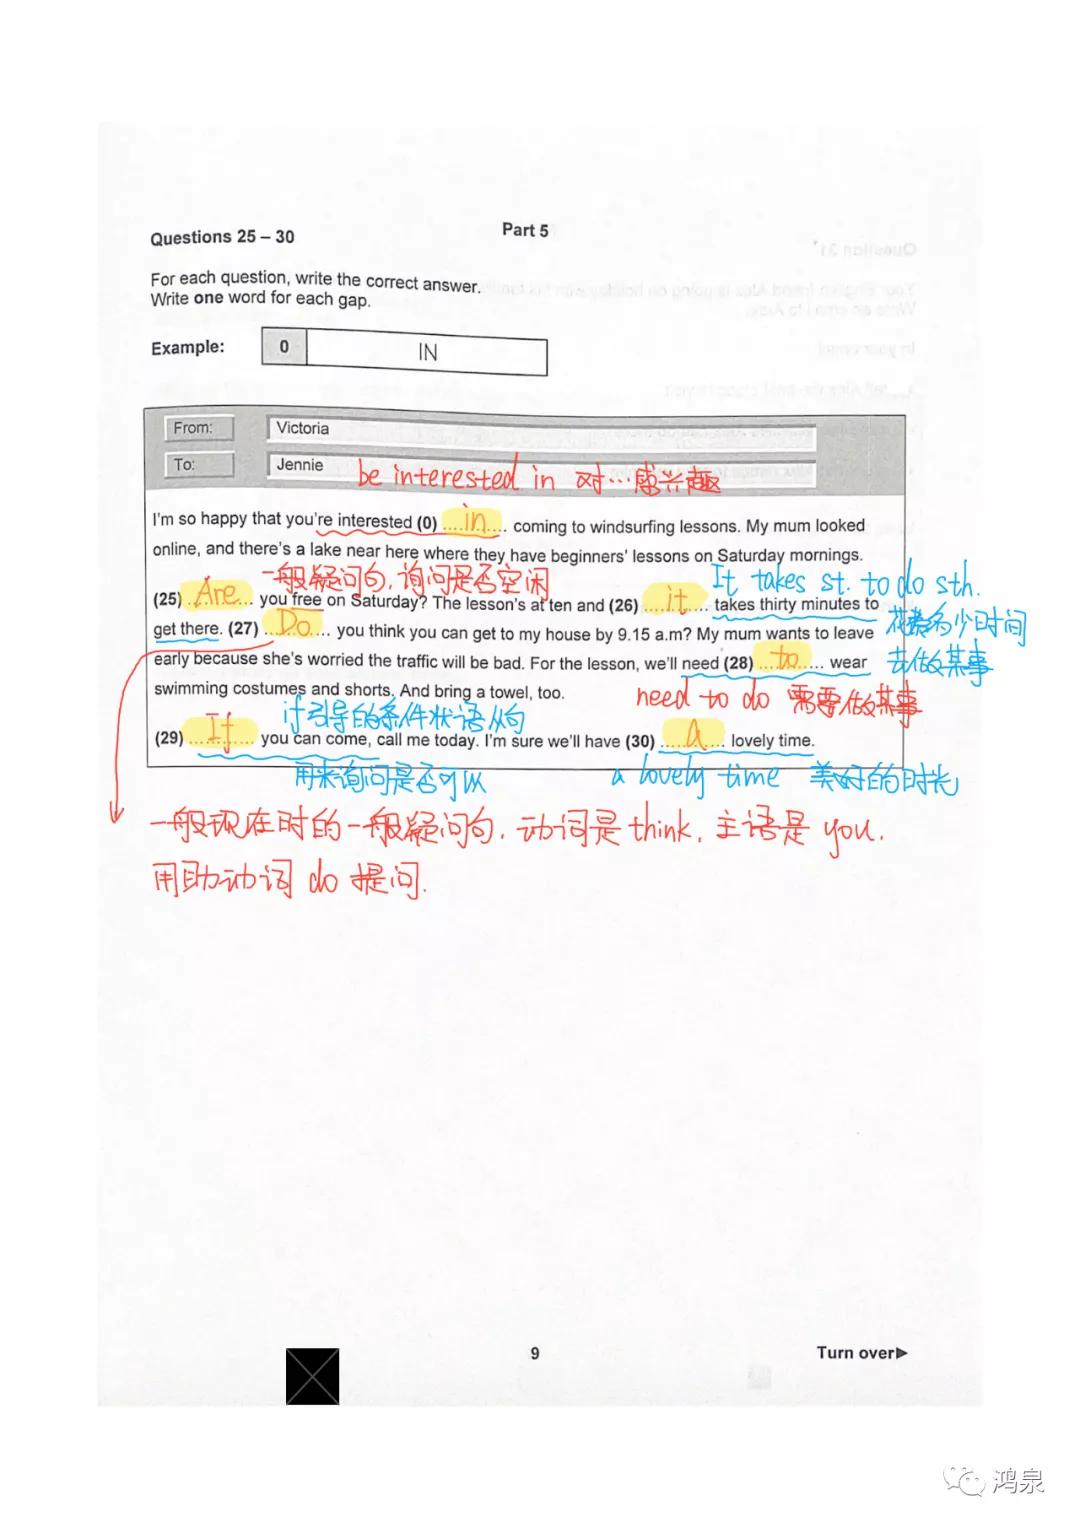 Part 5
Questions 25 – 30
For each question, write the correct answer.
Write one word for each gap.
Example:
0
IN
From:
Victoria
To:
Jennie
be interested in 对…感兴趣
I'm so happy that you're interested (0) ....in.... coming to windsurfing lessons. My mum looked
online, and there's a lake near here where they have beginners' lessons on Saturday mornings.
一般疑问句,询问是否空闲
It takes st. to do sth.
(25) ..Are... you free on Saturday? The lesson's at ten and (26) ....it.... takes thirty minutes to
花费多少时间
get there. (27) ..Do.... you think you can get to my house by 9.15 a.m? My mum wants to leave
去做某事
early because she's worried the traffic will be bad. For the lesson, we'll need (28) ...to.... wear
swimming costumes and shorts. And bring a towel, too.
need to do 需要做某事
if引导的条件状语从句
(29) ...If.... you can come, call me today. I'm sure we'll have (30) ....a.... lovely time.
用来询问是否可以
a lovely time 美好的时光
一般现在时的一般疑问句,动词是think,主语是you.
用助动词 do 提问.
9
Turn over▶
鸿泉